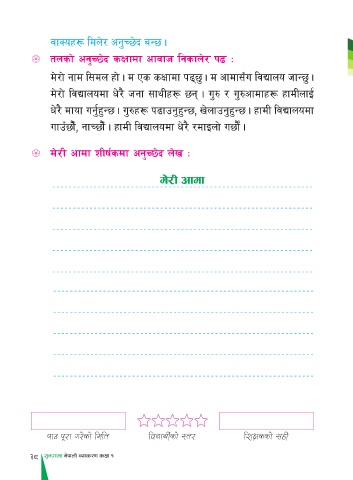 वाक्यहरू मिलेर अनुच्छेद बन्छ ।
तलको अनुच्छेद कक्षामा आवाज निकालेर पढ :
मेरो नाम सिमल हो । म एक कक्षामा पढ्छु । म आमासँग विद्यालय जान्छु ।
मेरो विद्यालयमा धेरै जना साथीहरू छन् । गुरु र गुरुआमाहरू हामीलाई
धेरै माया गर्नुहुन्छ । गुरुहरू पढाउनुहुन्छ, खेलाउनुहुन्छ । हामी विद्यालयमा
गाउँछौँ, नाच्छौँ । हामी विद्यालयमा धेरै रमाइलो गर्छौँ ।
मेरी आमा शीर्षकमा अनुच्छेद लेख :
मेरी आमा
पाठ पूरा गरेको मिति
विद्यार्थीको स्तर
शिक्षकको सही
नेपाली व्याकरण कक्षा १